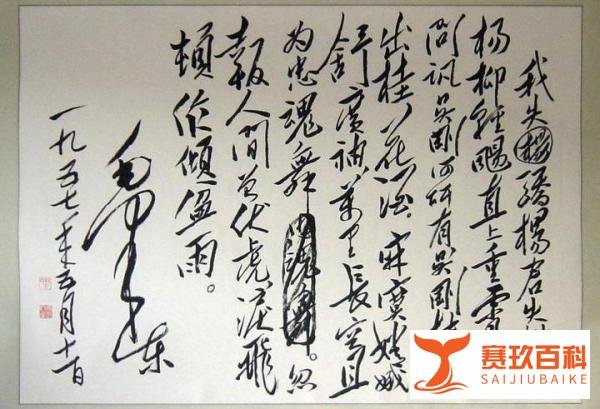 我失驕楊君失
杨柳轻飏直上重霄
问讯吴刚何所有吴刚
出桂花酒寂寞嫦娥
舒廣袖萬里長空且
为忠魂舞。忽
報人间曾伏虎淚飛
頓作傾盆雨。
毛泽东
一九五七年五月十一日
赛玖百科
SAIJIUBAIKE